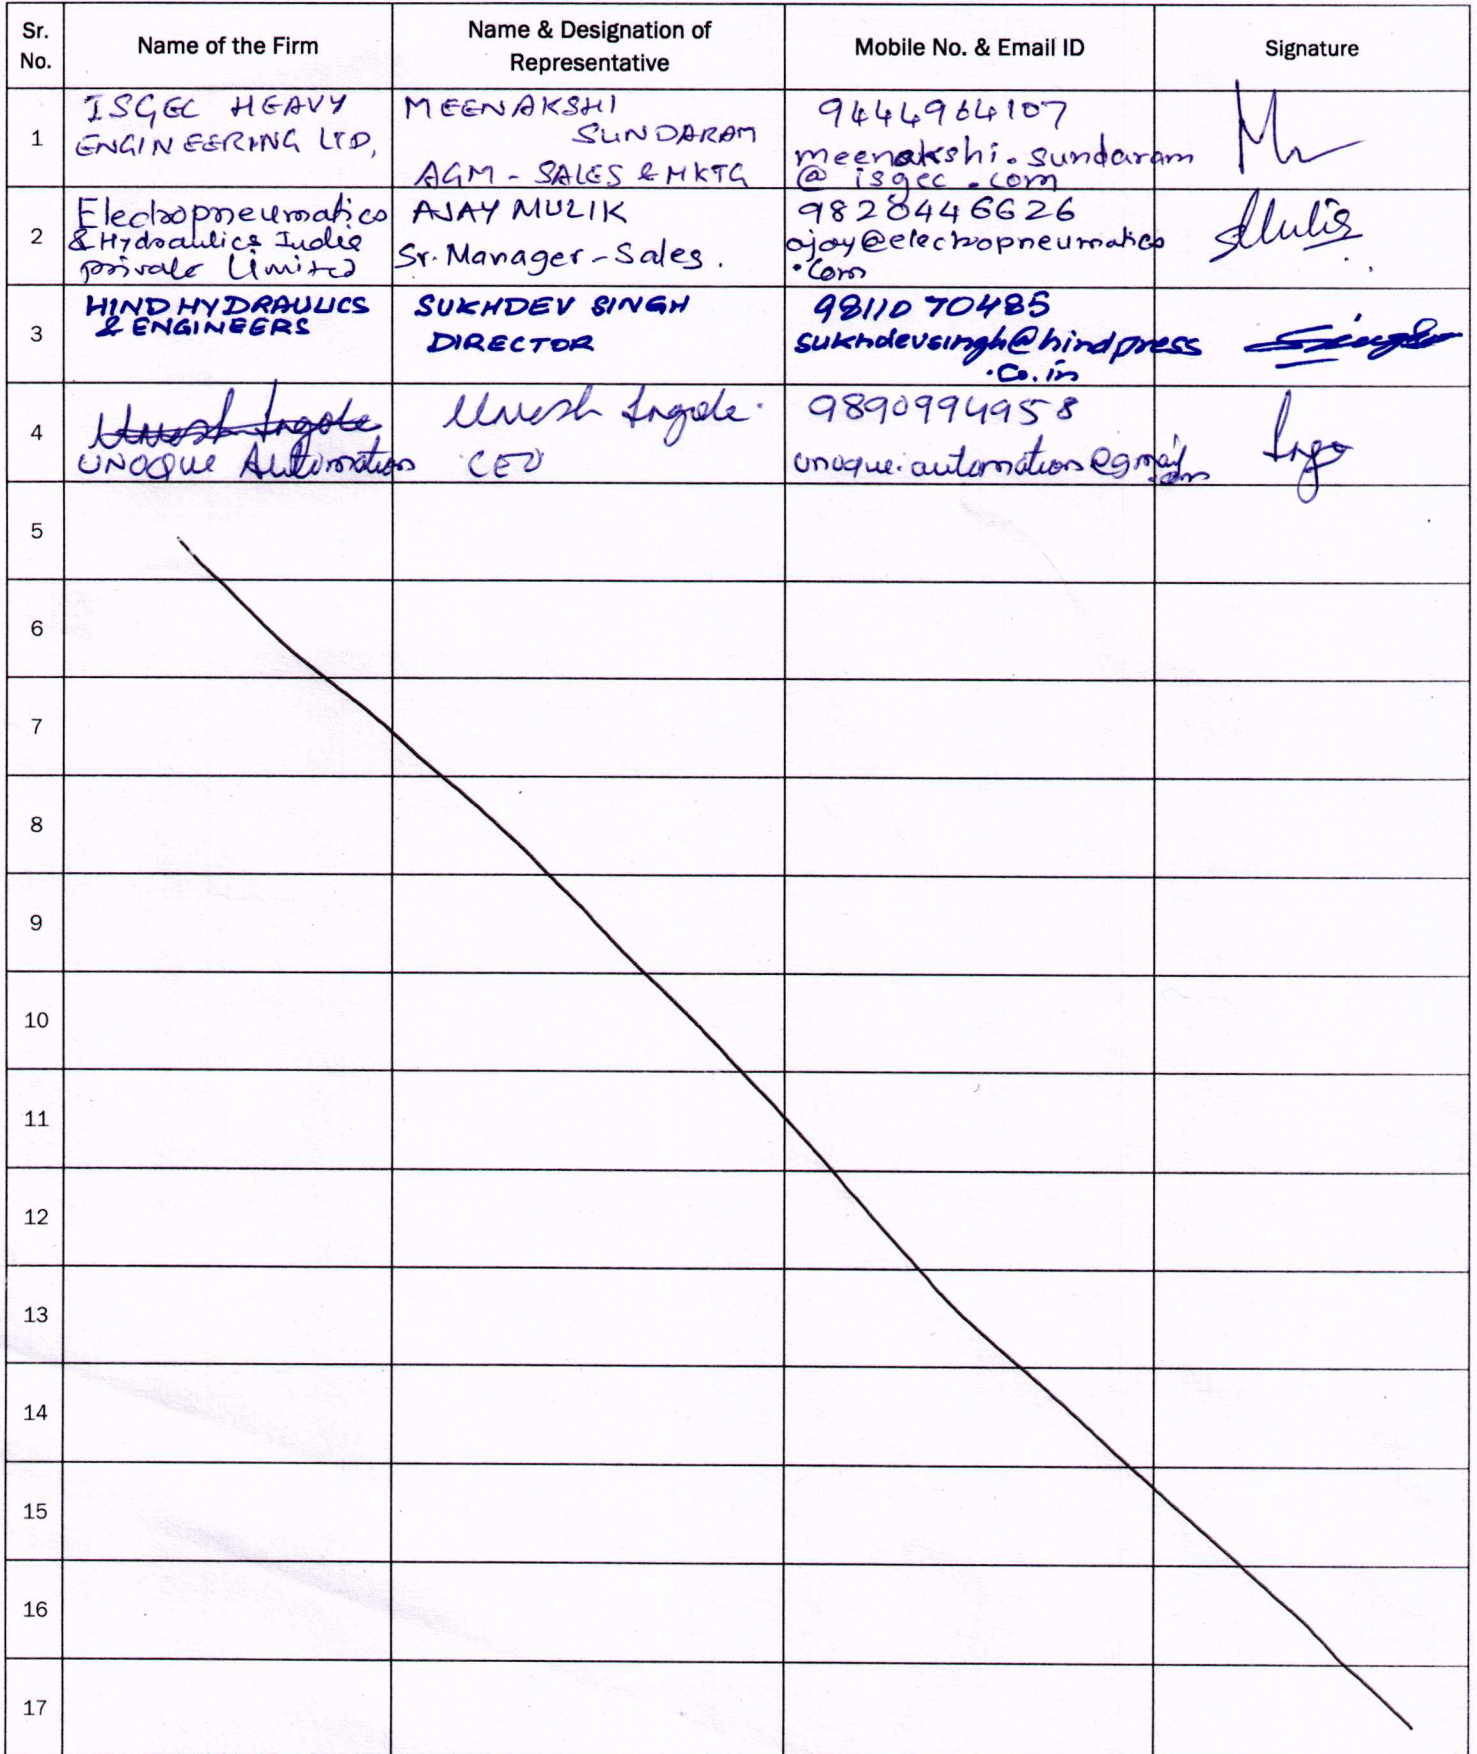 Sr. No.
Name of the Firm
Name & Designation of Representative
Mobile No. & Email ID
Signature
1
ISGEC HEAVY
ENGINEERING LTD,
MEENAKSHI
SUNDARAM
AGM - SALES & MKTG
9444964107
meenakshi.sundaram
@isgec.com
2
Electropneumatics
& Hydraulics India
private Limited
AJAY MULIK
Sr. Manager - Sales.
9820446626
ajay@electropneumatics
.com
3
HIND HYDRAULICS
& ENGINEERS
SUKHDEV SINGH
DIRECTOR
9811070485
sukhdevsingh@hindpress
.co.in
Singh
4
Umesh Ingole
UNOQUE Automation
Umesh Ingole.
CEO
9890994958
unoque.automation@gmail
.com
5
6
7
8
9
10
11
12
13
14
15
16
17